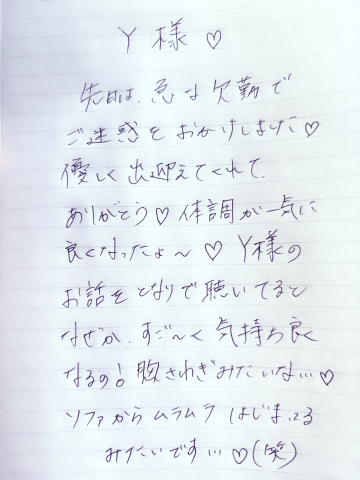 Y様♡
先日は、急な欠勤で
ご迷惑をおかけしました♡
優しく出迎えてくれて、
ありがとう♡体調が一気に
良くなったよ〜♡Y様の
お話をとなりで聴いてると
なぜか、すご〜く気持ち良く
なるの!胸さわぎみたいな…♡
ソファからムラムラはじまってる
みたいです…♡(笑)